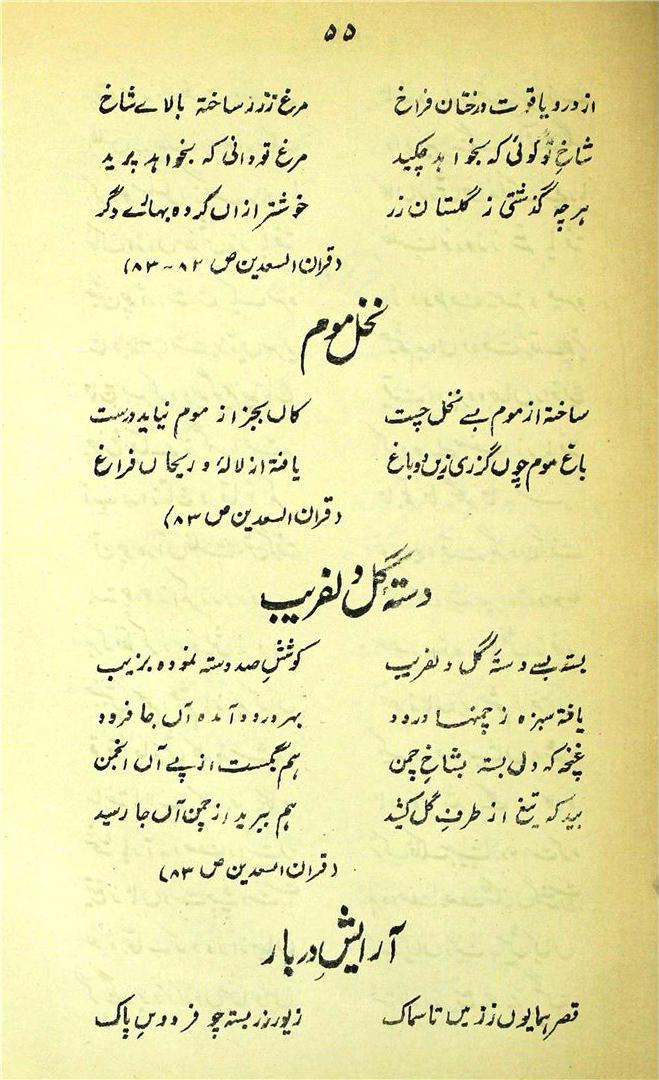 ۵۵
از در و یاقوت درختان فراخ مرغ ز زر ساخته بالاے شاخ
شاخِ تو گوئی که بخواهد چکید مرغ تو دانی که بخواهد پرید
هر چه گذشتی ز گلستان زر خوشتر ازاں کرده بهائے دگر
(قران السعدین ص ۸۲ - ۸۳)
نخل موم
ساخته از موم بسے نخل چست کاں بجز از موم نیاید درست
باغ موم چوں گزری زیں دو باغ یافته از لالۂ و ریحاں فراغ
(قران السعدین ص ۸۳)
دستۂ گل و لفریب
بسته بسے دستۂ گل دلفریب کوششِ صد دسته نموده بزیب
یافته سبزه ز چمنها درود بهر درود آمده آں جا فرود
غنچه که دل بسته بشاخِ چمن هم بگسست از پے آں انجمن
بید که تیغ از طرفِ گل کشد هم ببرید از چمن آں جا رسید
(قران السعدین ص ۸۳)
آرایشِ دربار
قصر همایوں ز زمیں تا سماک زیور زر بسته چو فردوسِ پاک